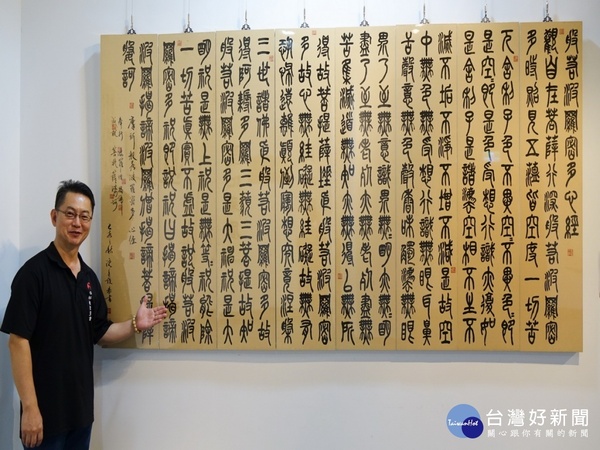 般若波羅蜜多心經
觀自在菩薩行深般若波羅蜜
多時照見五蘊皆空度一切苦
厄舍利子色不異空空不異色色即
是空空即是色受想行識亦復如
是舍利子是諸法空相不生不
滅不垢不淨不增不減是故空
中無色無受想行識無眼耳鼻
舌身意無色聲香味觸法無眼
界乃至無意識界無無明亦無無明
盡乃至無老死亦無老死盡無
苦集滅道無智亦無得以無所
得故菩提薩埵依般若波羅蜜
多故心無罣礙無罣礙故無有
恐怖遠離顛倒夢想究竟涅槃
三世諸佛依般若波羅蜜多故
得阿耨多羅三藐三菩提故知
般若波羅蜜多是大神咒是大
明咒是無上咒是無等等咒能除
一切苦真實不虛故說般若波
羅蜜多咒即說咒曰揭諦揭諦
波羅揭諦波羅僧揭諦菩提薩
婆訶
TaiwanHot
台灣好新聞
關心跟你有關的新聞